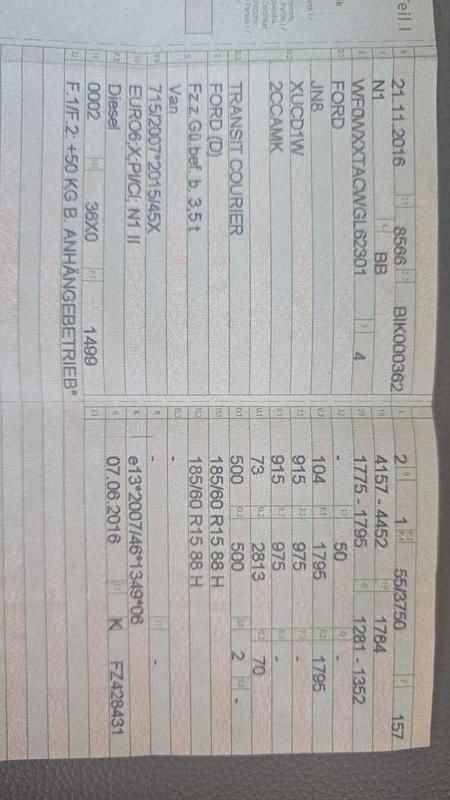 Teil I
21.11.2016 8566 BIK000362
N1 BB
WF0WXXTACWGL62301 4
FORD
JN8
XUCD1W
2CCAMK
TRANSIT COURIER
FORD (D)
Fz.z.Gü.bef. b. 3,5 t
Van
715/2007*2015/45X
EURO6;X;PI/CI; N1 II
Diesel
0002 36X0 1499
F.1/F.2: +50 KG B. ANHÄNGEBETRIEB*
2 1 55/3750 157
4157 - 4452 1764
1775 - 1795 1281 - 1352
- 50 -
104 1795 1795
915 975 -
915 975 -
73 2813 70
500 500 2 -
185/60 R15 88 H
185/60 R15 88 H
-
- -
e13*2007/46*1349*06
07.06.2016 K FZ428431